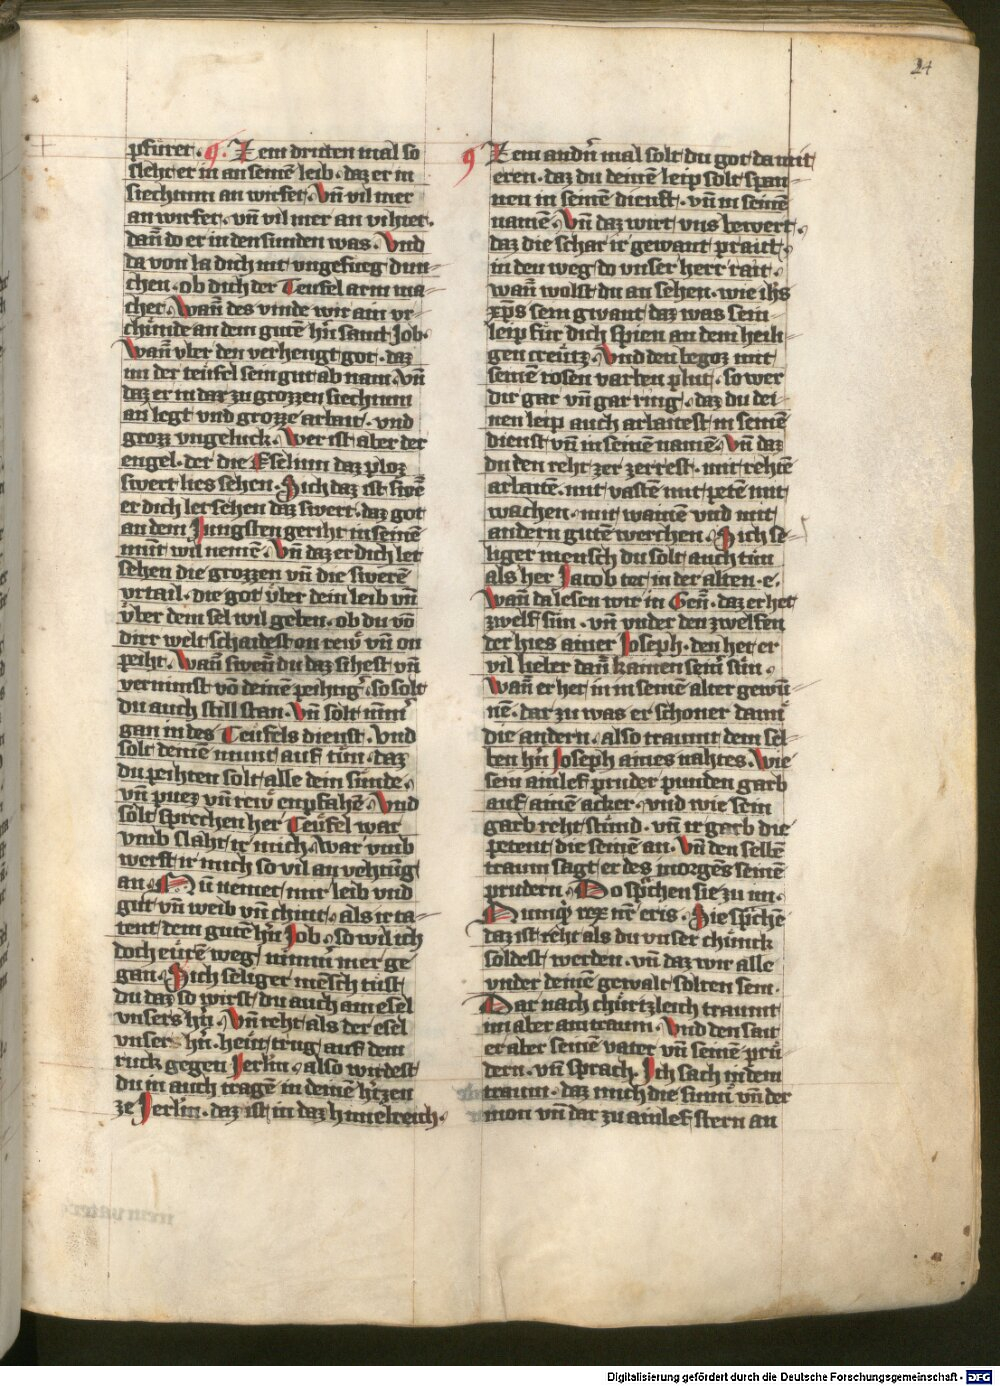 24
pfüret. ¶. Zem dritten mal so
sleht er in an seinē leib. daz er in
siechtum an wirfet. Vn̄ vil mer
an wirfet. vn̄ vil mer an vihtet.
dan̄ do er in den sunden was. Vnd
da von la dich nit vngefueg dun-
chen. ob dich der Teufel arm ma-
chet. Wan̄ des vinde wir ain vr-
chünde an dem gutē hn̄ sant Job.
Wan̄ vber den verhengt got. daz
im der teüfel sein gut ab nam. Vn̄
daz er in dar zu grozzen siechtum
an legt vnd grozze arbait. vnd
groz vngeluck. Wer ist aber der
engel. der die Eselinn daz ploz
swert lies sehen. Sich daz ist swē
er dich let sehen daz swert. daz got
an dem Jungsten geriht in seinē
munt wil nemē. Vn̄ daz er dich let
sehen die grozzen vn̄ die swerē
vrtail. die got über dein leib vn̄
über dein sel wil geben. ob du vō
dirr welt schaidest on rew vn̄ on
peiht. Wan̄ swen̄ du daz sihest vn̄
vernimst vō deinē peihtig'. so solt
du auch still stan. Vn̄ solt nim̄'
gan in des Teufels dienst. Vnd
solt deinē munt auf tün. daz
du peihten solt alle dein sünde.
vn̄ puez vn̄ rew enpfahē. Vnd
solt sprechen her Teüfel war
vmb slaht ir mich. War vmb
werft ir mich so vil an vehtūg
an. Nü nemet mir leib vnd
gut vn̄ weib vn̄ chint. als ir ta-
tent dem gutē hn̄ Job. so wil ich
doch eürē weg nim̄' mer ge
gan. Sich seliger mēsch tüst
du daz so wirst du auch ain esel
vnsers hn̄. Vn̄ reht als der esel
vnsers hn̄. hein trug auf dem
ruck gegen Jerl̄m. also wirdest
du in auch tragē in deinē h'tzen
ze Jerl̄m. daz ist in daz himelreich.
¶ Zem andn̄ mal solt du got da mit
eren. daz du deinē leip solt span-
nen in seinē dienst. vn̄ in seinē
namē. Vn̄ daz wirt vns bewert.
daz die schar ir gewant prait
in den weg do vnser herr rait.
Wan̄ wolst du an sehen. wie ih̄s
xp̄s sein gwant daz was sein
leip für dich spien an dem heili
gen creütz. Vnd den begoz mit
seinē rosen varben plut. so wer
dir gar vn̄ gar ring. daz du dei-
nen leip auch arbaitest in seinē
dienst vn̄ in seinē namē. Vn̄ daz
du den reht zer zerrest. mit rehtē
arbaitē. mit vastē mit petē mit
wachen. mit wainē vnd mit
andern gutē werchen. Sich se-
liger mensch du solt auch tün
als her Jacob tet in der alten. e.
Wan̄ da lesen wir in Gen̄. daz er het
zwelf sün. vn̄ vnder den zwelfen
der hies ainer Joseph. den het er
vil lieber dan̄ kainen sein' sün.
Wan̄ er het in in seinē alter gewū-
nē. dar zu was er schoner dann
die andern. also traumt dem sel-
ben hn̄ Joseph aines nahtes. Wie
sein ainlef pruder punden garb
auf ainē acker. vnd wie sein
garb reht stünd. vn̄ ir garb die
petent die seinē an. Vn̄ den selbē
traum sagt er des morgēs seinē
prudern. Do sp̄chen sie zu im.
Numq̄d rex nr̄ eris. Sie sp̄chē
daz ist reht als du vnser chünck
söldest werden. vn̄ daz wir alle
vnder deinē gewalt solten sein.
Dar nach chürtzleich traumt
im aber ain traum. Vnd den sait
er aber seinē vater vn̄ seinē prü
dern. vn̄ sprach. Ich sach in dem
traum. daz mich die sunn̄ vn̄ der
mon vn̄ dar zu ainlef stern an
Digitalisierung gefördert durch die Deutsche Forschungsgemeinschaft - DFG